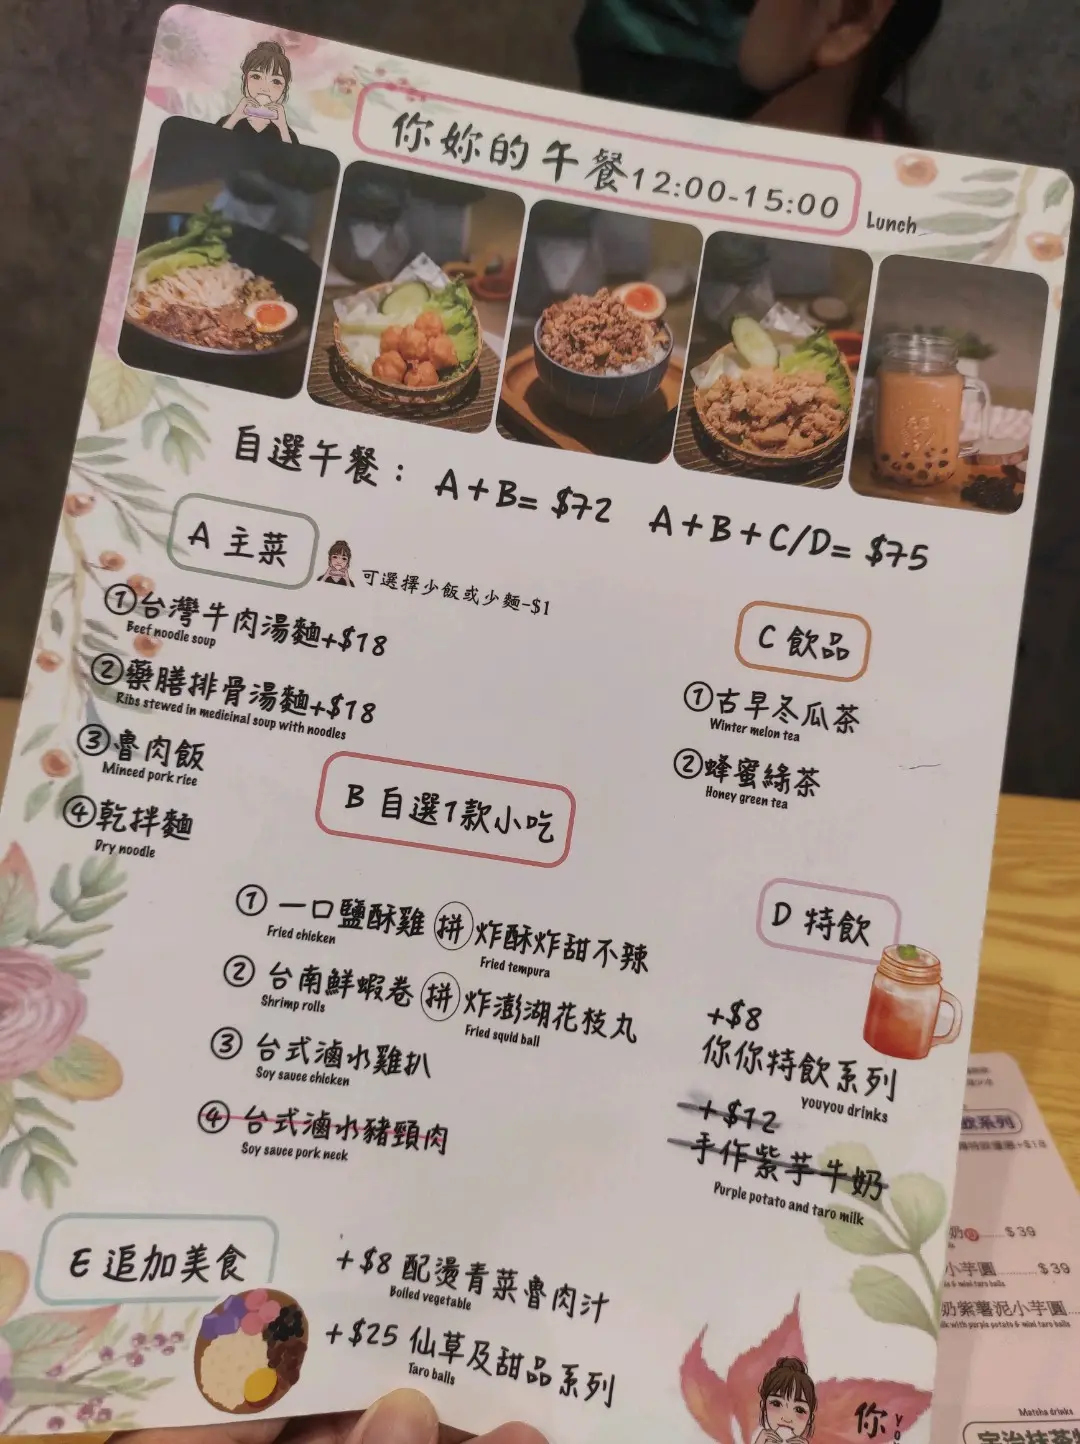 你妳的午餐12:00-15:00
Lunch
自選午餐： A+B= $72 A+B+C/D= $75
A 主菜
可選擇少飯或少麵-$1
①台灣牛肉湯麵+$18
Beef noodle soup
②藥膳排骨湯麵+$18
Ribs stewed in medicinal soup with noodles
③魯肉飯
Minced pork rice
④乾拌麵
Dry noodle
C 飲品
①古早冬瓜茶
Winter melon tea
②蜂蜜綠茶
Honey green tea
B 自選1款小吃
① 一口鹽酥雞 拼 炸酥炸甜不辣
Fried chicken Fried tempura
② 台南鮮蝦卷 拼 炸澎湖花枝丸
Shrimp rolls Fried squid ball
③ 台式滷水雞扒
Soy sauce chicken
④ 台式滷水豬頸肉
Soy sauce pork neck
D 特飲
+$8
你你特飲系列
youyou drinks
+$12
手作紫芋牛奶
Purple potato and taro milk
E 追加美食
+$8 配燙青菜魯肉汁
Boiled vegetable
+$25 仙草及甜品系列
Taro balls
你
飲系列
奶 $39
小芋圓 $39
奶紫薯泥小芋圓
Matcha drinks
宇治抹茶